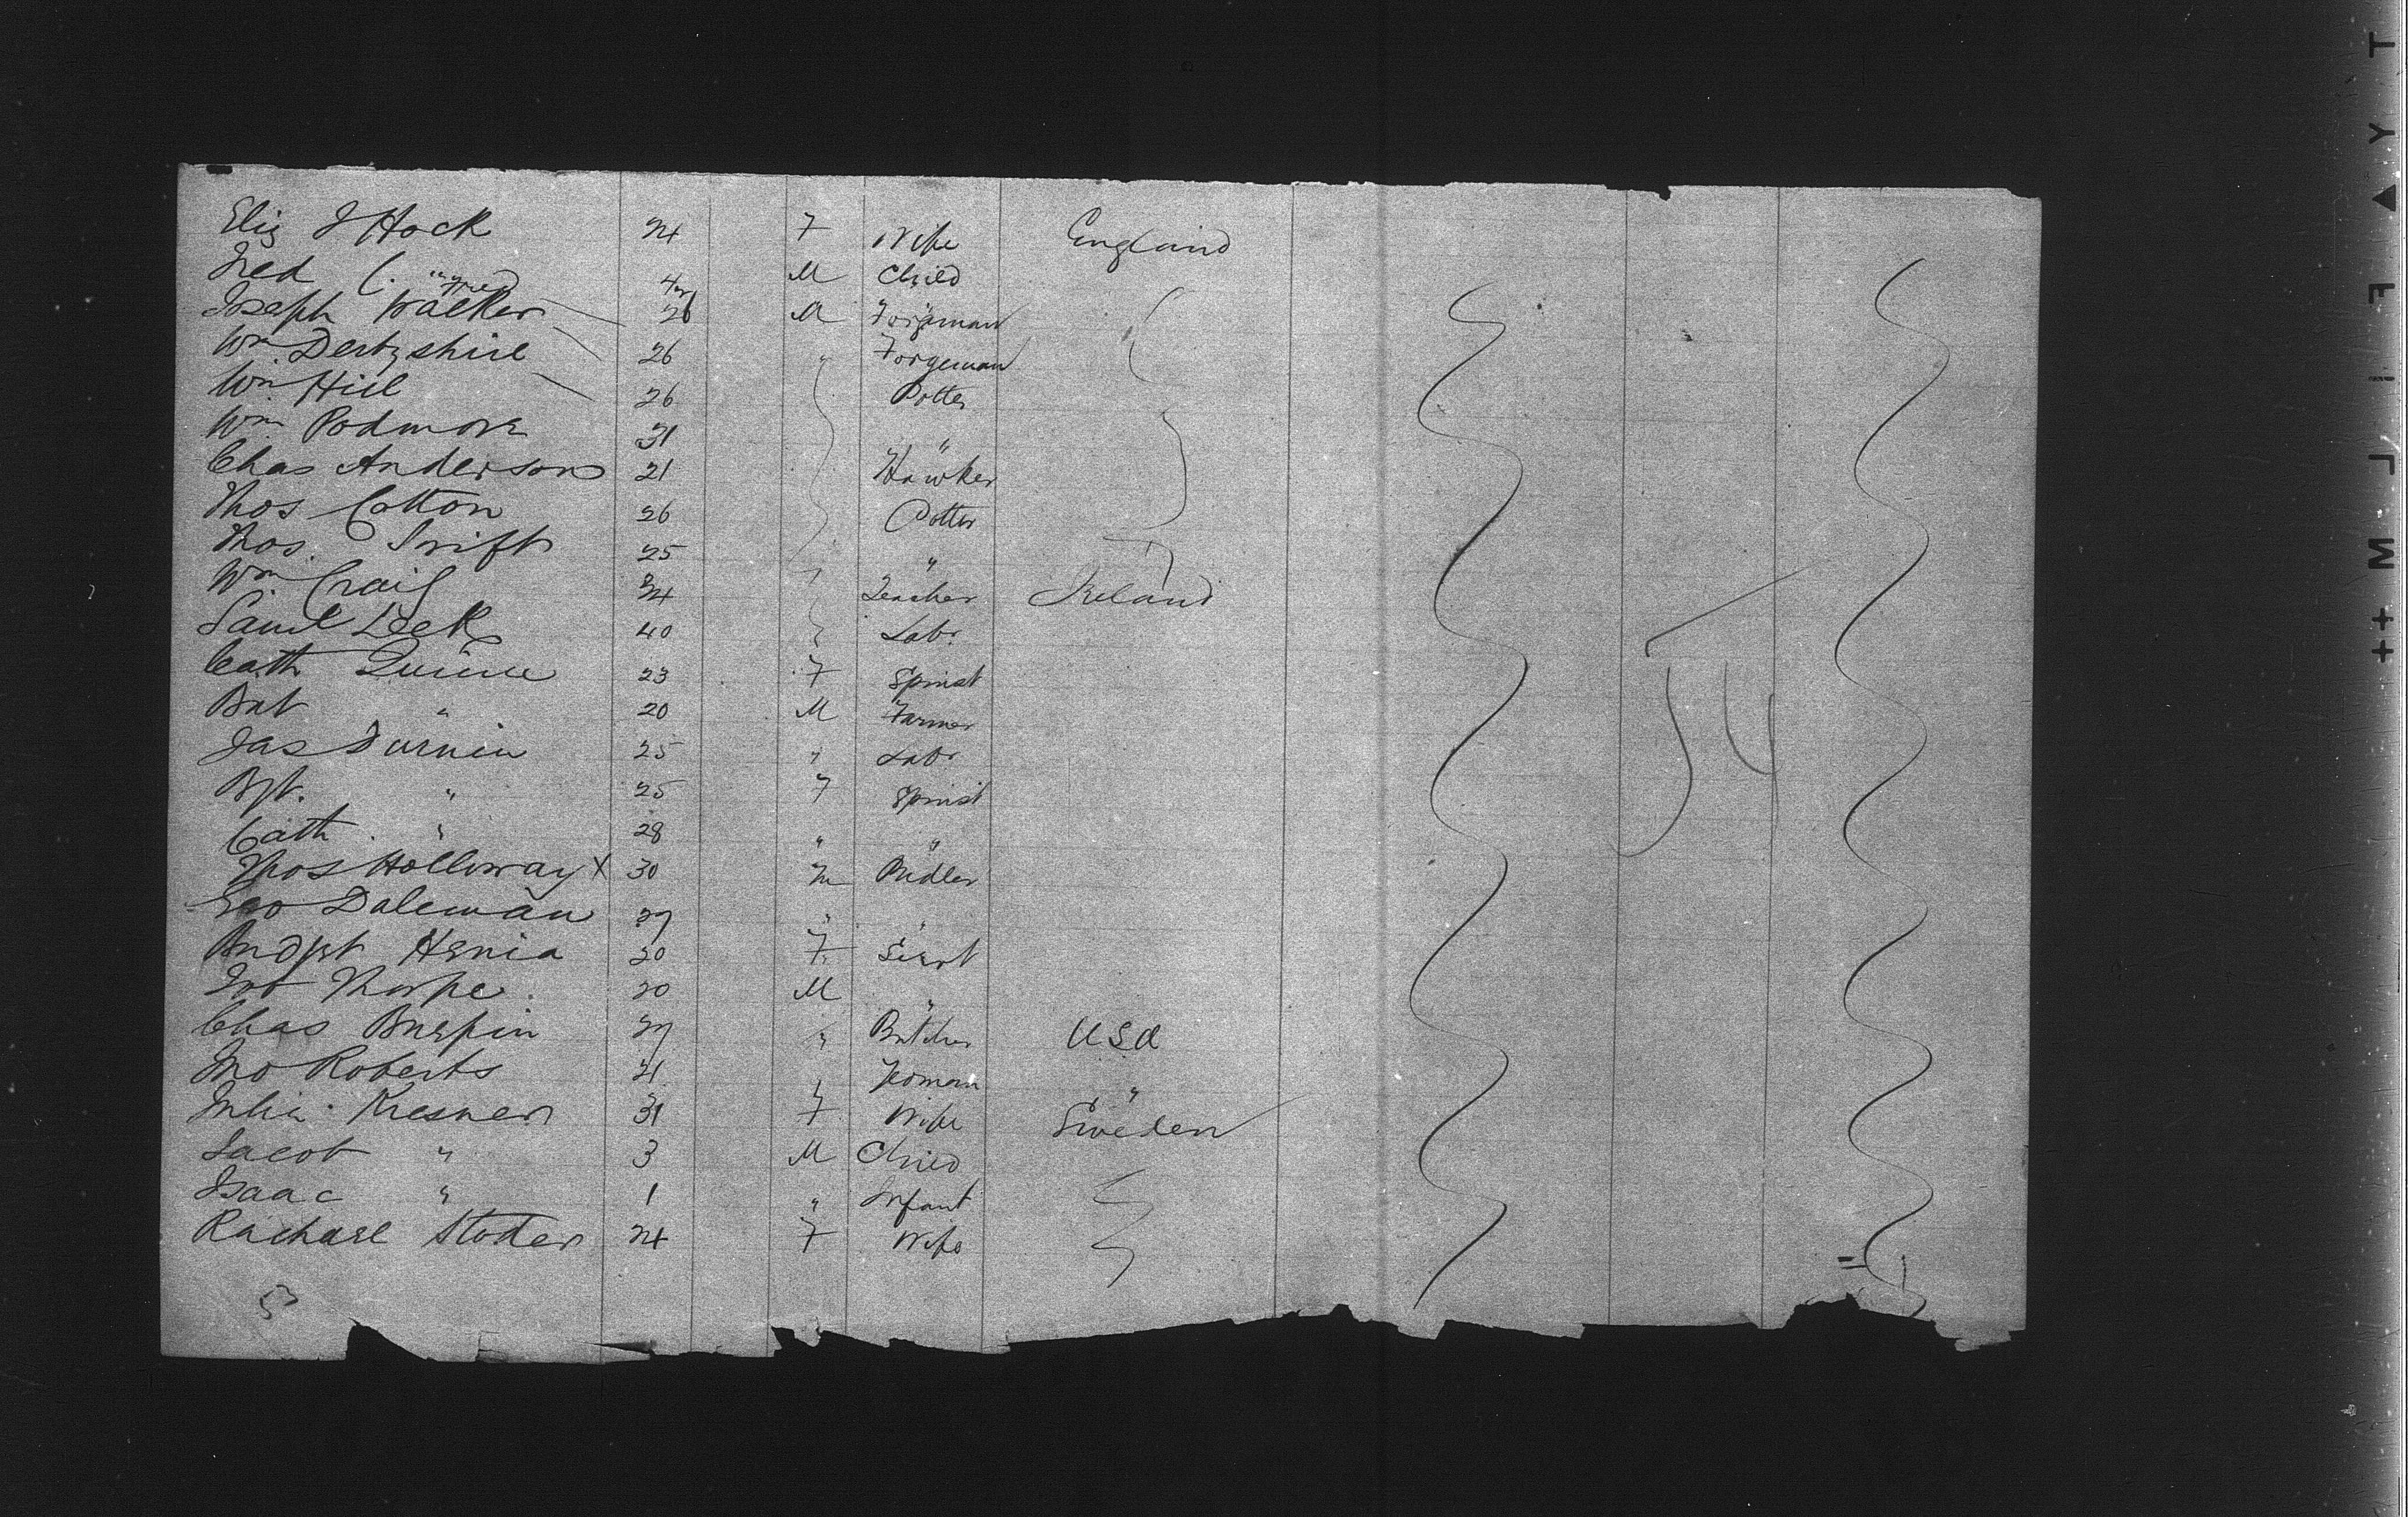 Eliz J Hock 24 F Wife England
Fred C. " 4 M Child
Joseph Walker 26 M Forgeman
Wm Derbyshire 26 " Forgeman
Wm Hill 26 Potter
Wm Podmore 31 "
Chas Anderson 21 Hawker
Thos Cotton 26 Potter
Thos. Swift 25 "
Wm Craig 24 " Teacher Ireland
Saml Leek 40 Labr
Cath Quinn 23 F Spinst
Bat " 20 M Farmer
Jas Durnin 25 " Labr
Bgt. " 25 F Spinst
Cath. " 28 " "
Thos Holloway X 30 M Pudler
Geo Daleman 27 " "
Bridget 20 F Servt
Thorpe 20 M "
Chas 27 " Butcher USA
Jno Roberts 21 " Yeoman "
Julia Kresner 31 F Wife Sweden
Jacob " 3 M Child
Isaac " 1 " Infant
Rachael Stoder 24 F Wife